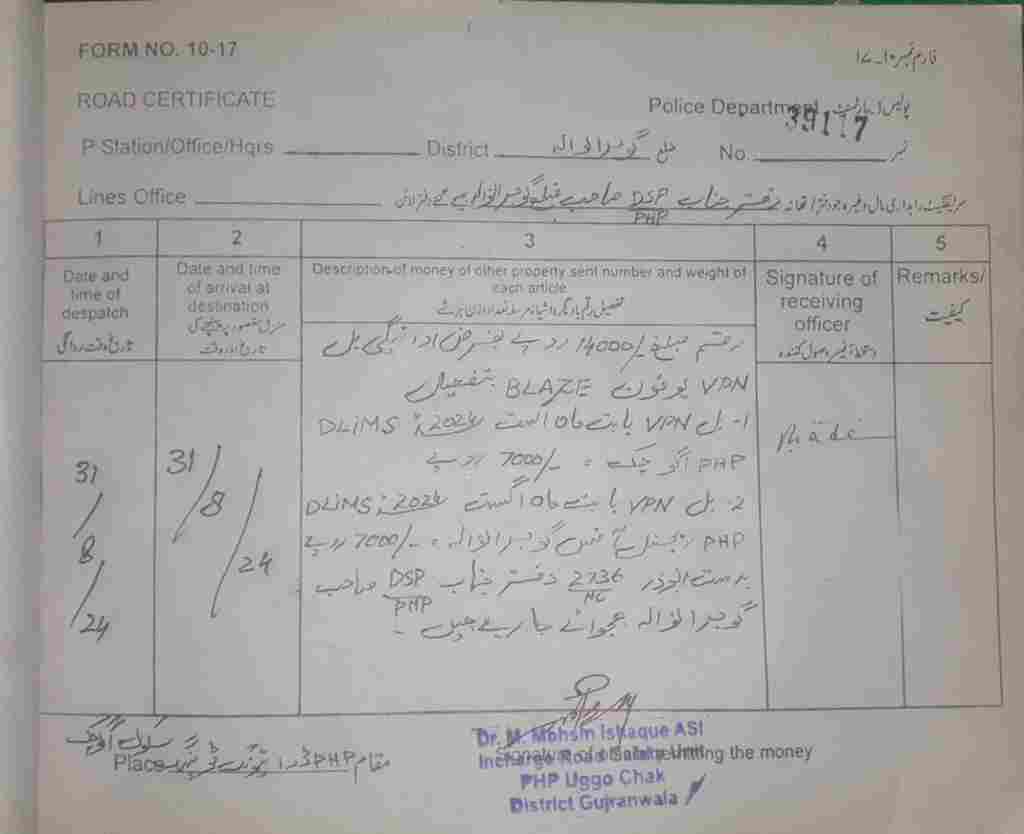 FORM NO. 10-17
فارم نمبر ۱۰۔۱۷
ROAD CERTIFICATE
Police Department پولیس ڈیپارٹمنٹ
P-Station/Office/Hqrs District ضلع گوجرانوالہ No. 39117 نمبر
Lines Office
دفتر جناب DSP/PHP صاحب ضلع گوجرانوالہ
1 2 3 4 5
Date and time of despatch
تاریخ و وقت روانگی
Date and time of arrival at destination
تاریخ اور وقت
Description of money of other property sent number and weight of each article
Signature of receiving officer
Remarks/
کیفیت
31/8/24
31/8/24
رقم مبلغ 14000/- روپے بغرض ادائیگی بل
VPN یوفون BLAZE بتفصیل
۱۔ بل VPN بابت ماہ اگست 2024ء DLiMS
PHP اگو چک = 7000/- روپے
۲۔ بل VPN بابت ماہ اگست 2024ء DLiMS
PHP ریجنل آفس گوجرانوالہ = 7000/- روپے
بدست ابوذر 2736/HC دفتر جناب DSP/PHP صاحب
گوجرانوالہ بھجوائے جا رہے ہیں۔
Dr. M. Mohsin Ishaque ASI
Incharge Road Safety Unit
PHP Uggo Chak
District Gujranwala
Signature of officer remitting the money
Place مقام PHP